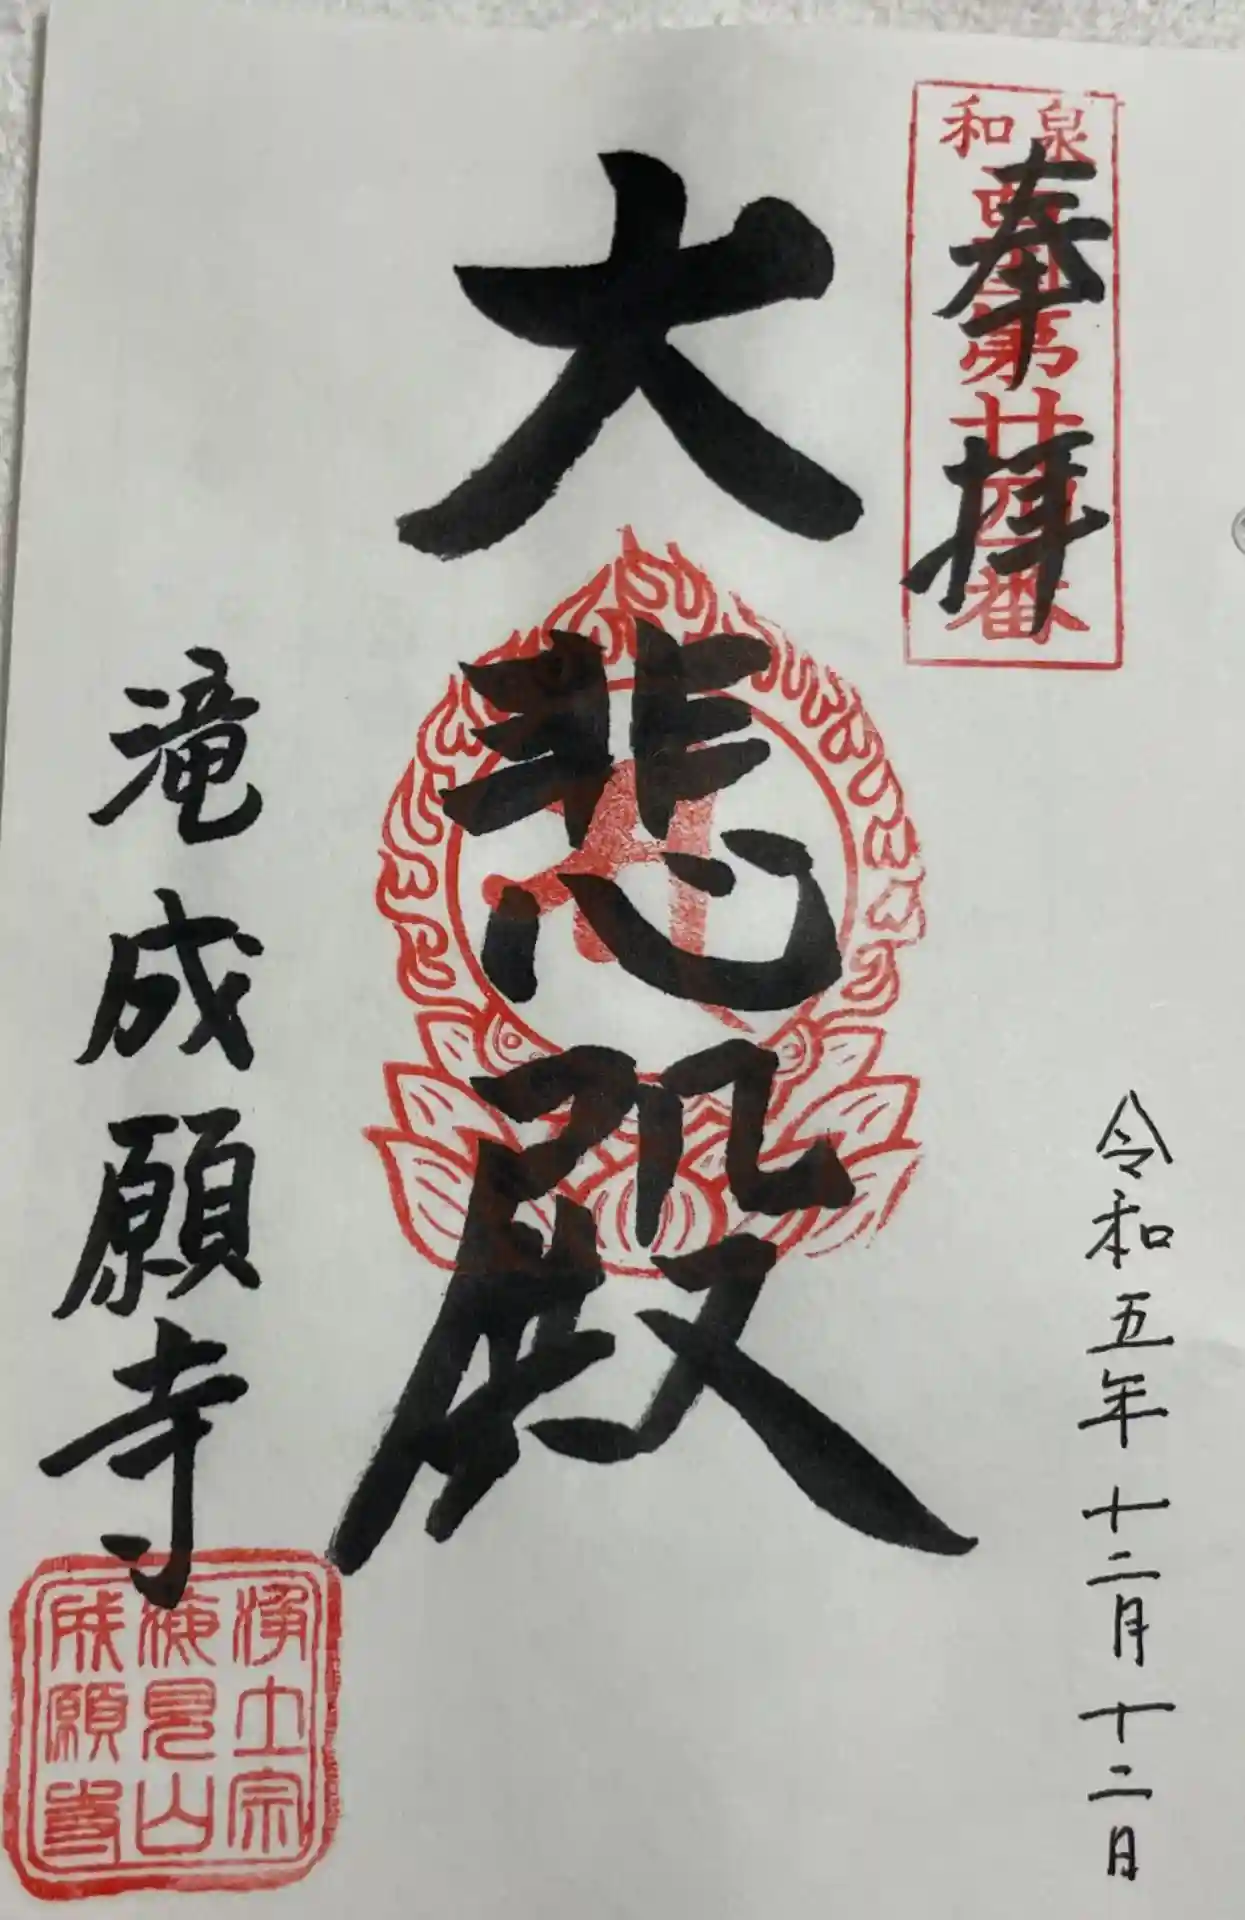 和泉
西国第廿四番
奉拝
令和五年十二月十二日
大悲殿
滝成願寺
浄土宗
海見山
成願寺